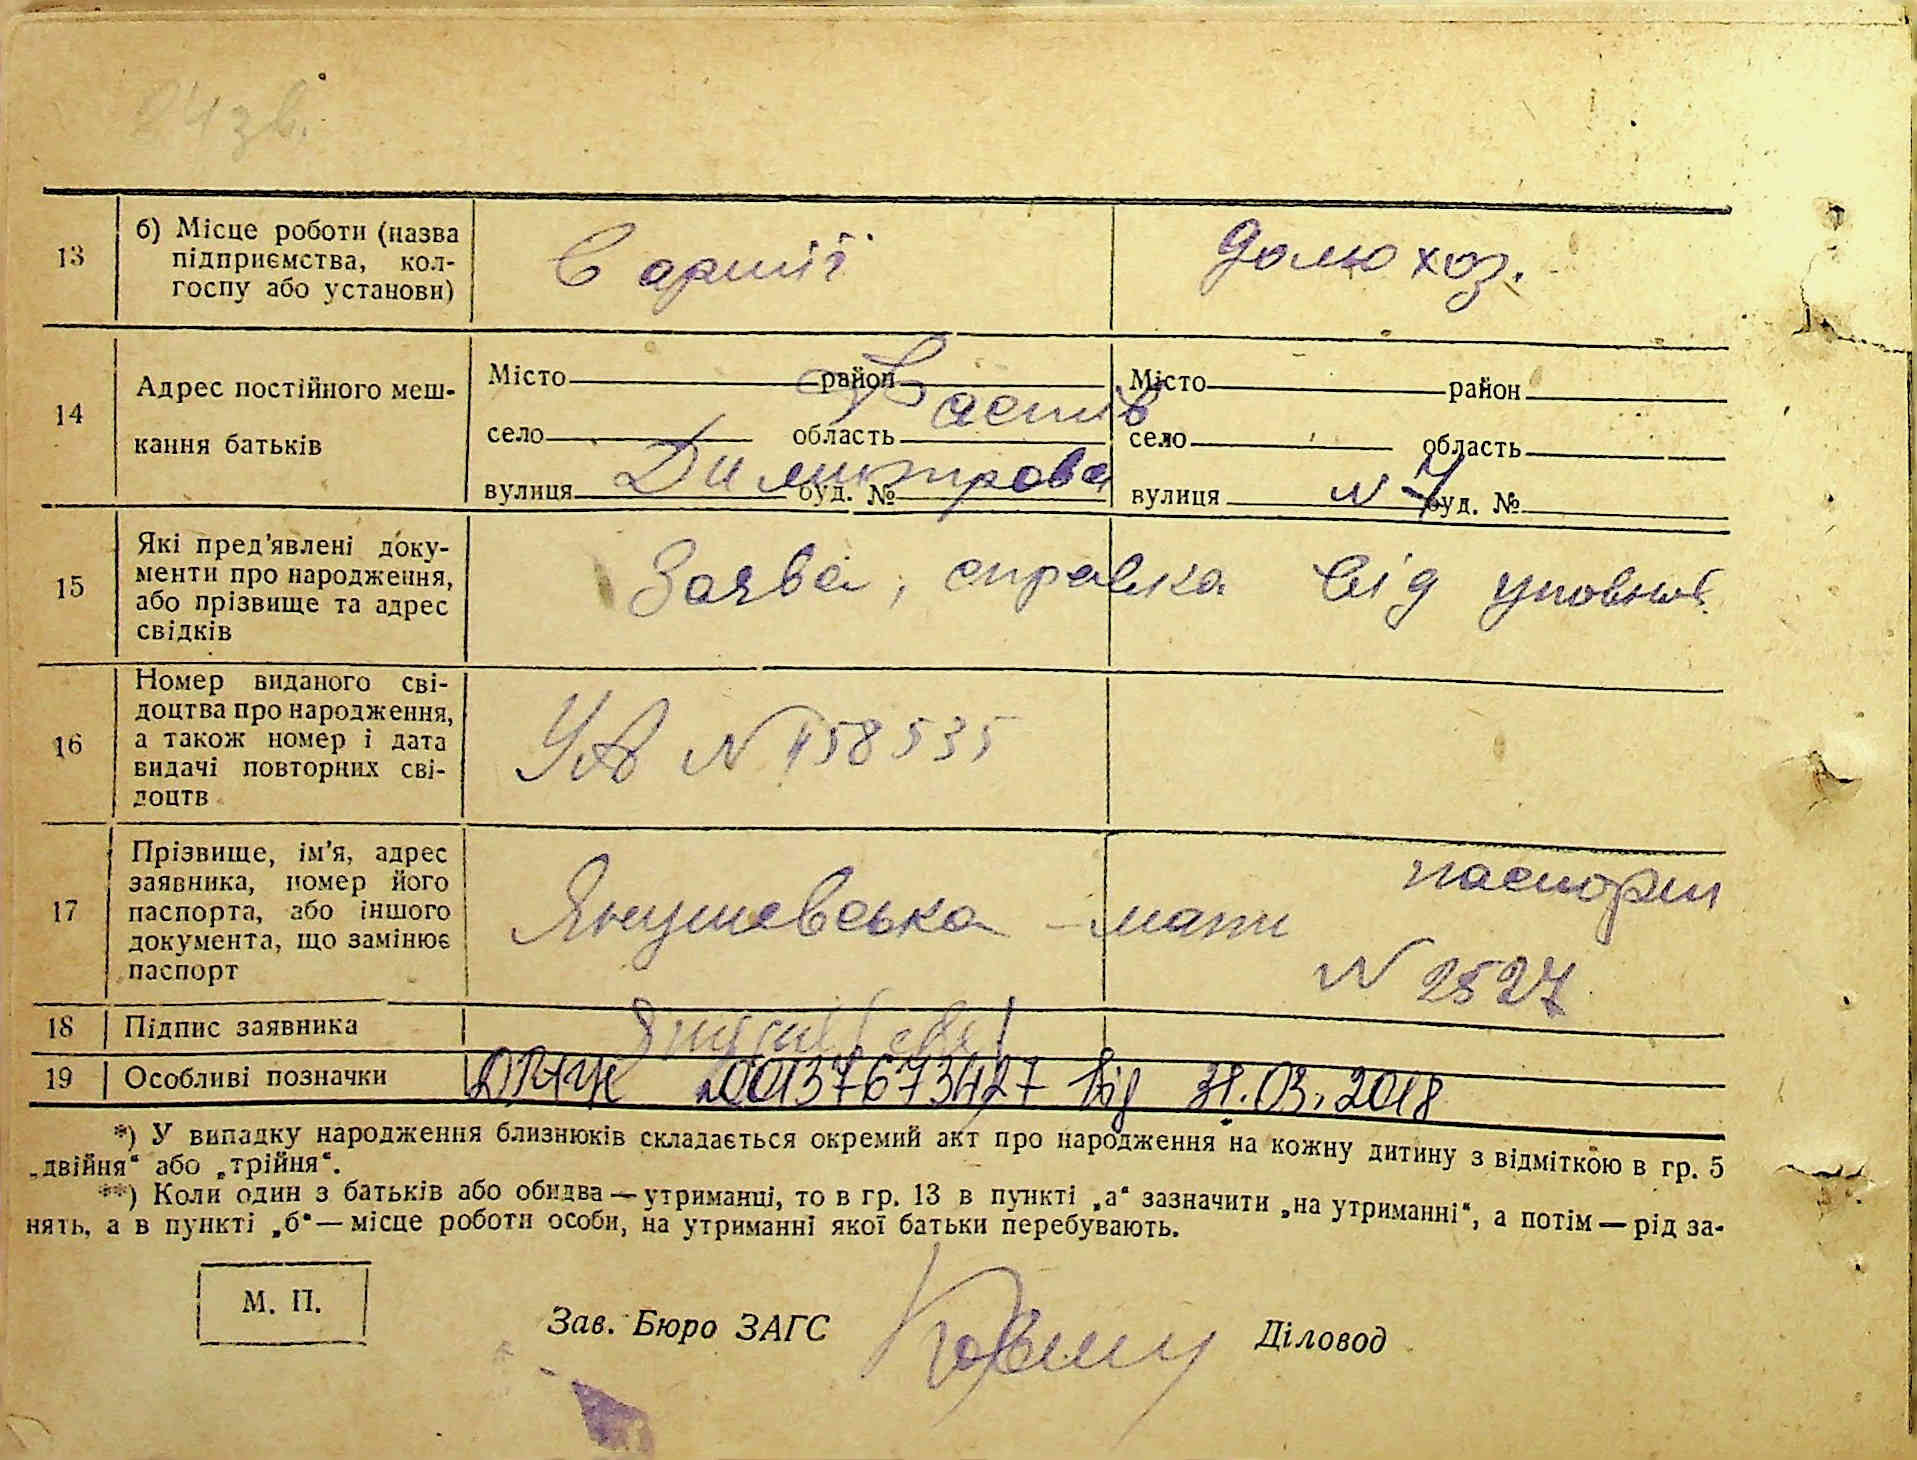 24 зв.
13 б) Місце роботи (назва підприємства, кол-госпу або установи) в армії домохоз.
14 Адрес постійного меш-кання батьків
Місто район Місто район
Фастів
село область село область
вулиця Димитрова буд. № вулиця N 7 буд. №
15 Які пред'явлені доку-менти про народження, або прізвище та адрес свідків Заява, справка від уповнов.
16 Номер виданого сві-доцтва про народження, а також номер і дата видачі повторних сві-доцтв УА N 458535
17 Прізвище, ім'я, адрес заявника, номер його паспорта, або іншого документа, що замінює паспорт Янушевська - мати паспорт N 2527
18 Підпис заявника
19 Особливі позначки 00137673427 від 31.03.2018
*) У випадку народження близнюків складається окремий акт про народження на кожну дитину з відміткою в гр. 5
„двійня“ або „трійня“.
**) Коли один з батьків або обидва — утриманці, то в гр. 13 в пункті „а“ зазначити „на утриманні“, а потім — рід за-
нять, а в пункті „б“ — місце роботи особи, на утриманні якої батьки перебувають.
М. П.
Зав. Бюро ЗАГС Діловод